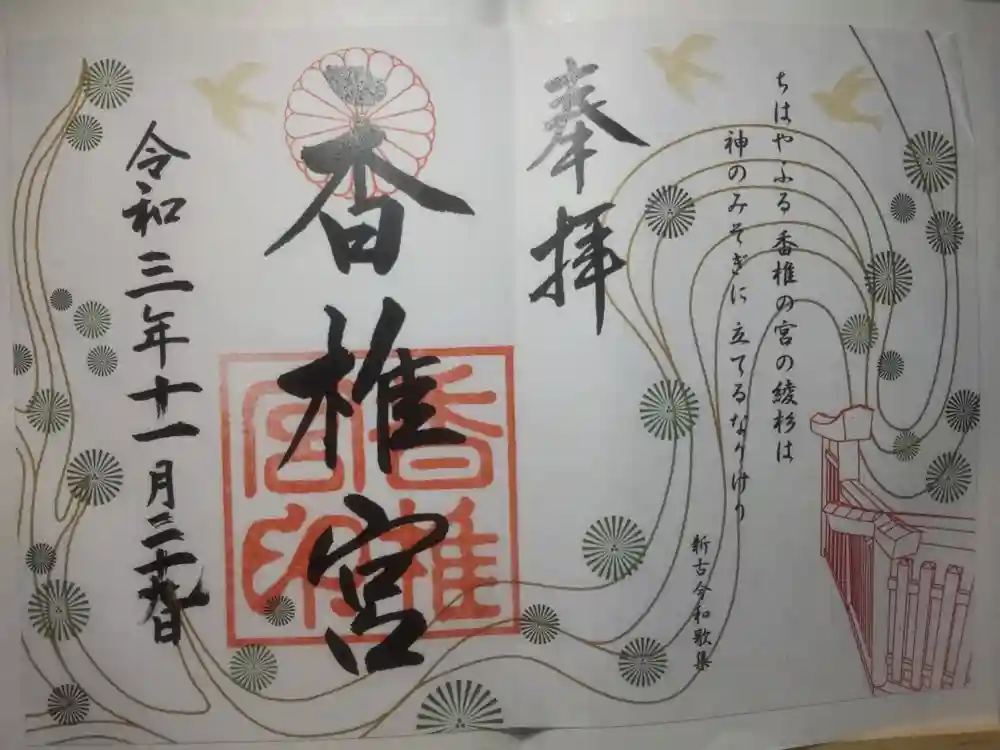 ちはやふる香椎の宮の綾杉は
神のみそぎに立てるなりけり
新古今和歌集
奉拝
香椎宮
香椎宮印
令和三年十一月二十九日